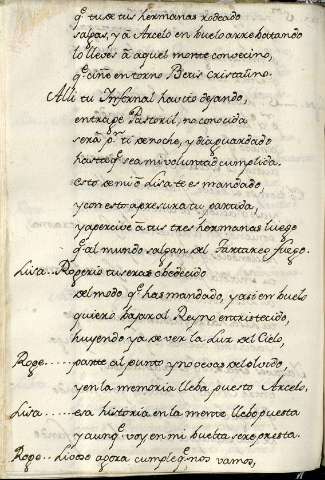 q̃ tu de tus hermanas rodeado
salgas, y a Arcelo en buelo arrebatando
lo lleves à aquel monte convecino,
q̃ ciñe en torno Betis cristalino.
Alli tu Infernal havito dejando,
entra pe Pastoril, no conocida
será pr̃ ti de noche, y dia guardado
hasta q̃ sea mi voluntad cumplida.
esto de mi ò Lisa te es mandado,
y con esto apresura tu partida,
y apercive à tus tres hermanas luego
q̃ al mundo salgan del Tartareo fuego.
Lisa... Rogerio tu seras obedecido
del modo q̃ has mandado, y asi en buelo
quiero bajar al Reyno entristecido,
huyendo ya de ver la Luz del Cielo,
Roge.... parte al punto y no ocupes del olvido,
y en la memoria lleba puesto Arcelo,
Lisa...... esa historia en la mente llebo puesta
y aunq̃ voy en mi buelta sere presta.
Roge... Lioso agora cumple q̃ nos vamos,